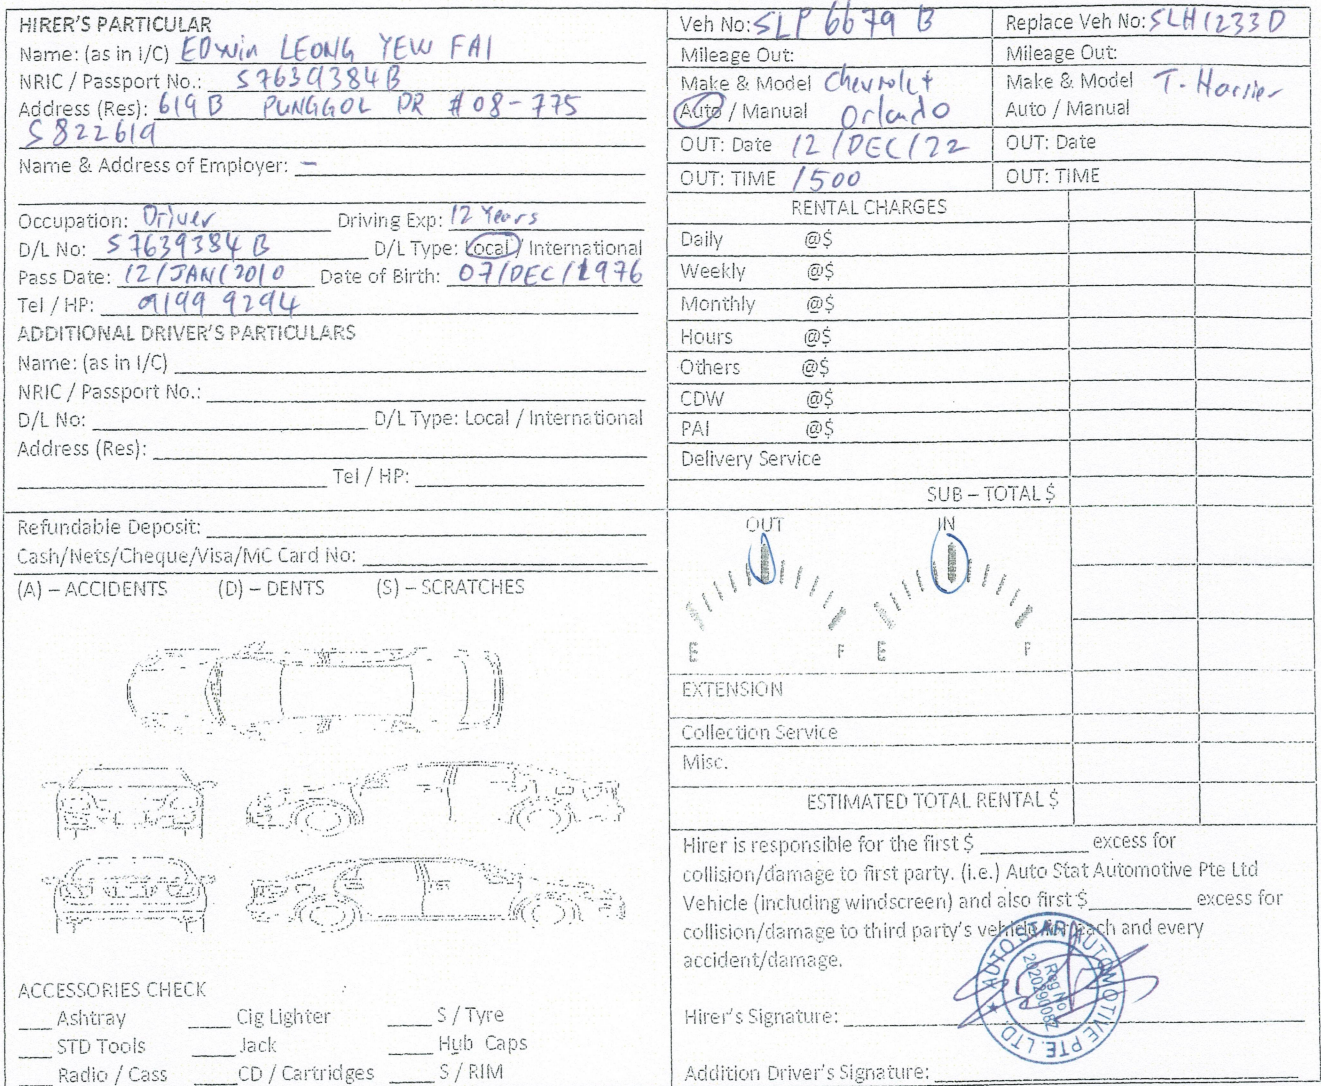 HIRER'S PARTICULAR
Name: (as in I/C) EDwin LEONG YEW FAI
NRIC / Passport No.: S7639384B
Address (Res): 619B PUNGGOL DR #08-775
S822619
Name & Address of Employer: –
Occupation: Driver Driving Exp: 12 Years
D/L No: S7639384B D/L Type: Local / International
Pass Date: 12/JAN/2010 Date of Birth: 07/DEC/1976
Tel / HP: 9199 9294
ADDITIONAL DRIVER'S PARTICULARS
Name: (as in I/C)
NRIC / Passport No.:
D/L No: D/L Type: Local / International
Address (Res):
Tel / HP:
Refundable Deposit:
Cash/Nets/Cheque/Visa/MC Card No:
(A) – ACCIDENTS (D) – DENTS (S) – SCRATCHES
ACCESSORIES CHECK
Ashtray Cig Lighter S / Tyre
STD Tools Jack Hub Caps
Radio / Cass CD / Cartridges S / RIM
Veh No: SLP 6679 B Replace Veh No: SLH1233D
Mileage Out: Mileage Out:
Make & Model Chevrolet Make & Model T. Harrier
Auto / Manual Orlando Auto / Manual
OUT: Date 12/DEC/22 OUT: Date
OUT: TIME 1500 OUT: TIME
RENTAL CHARGES
Daily @$
Weekly @$
Monthly @$
Hours @$
Others @$
CDW @$
PAI @$
Delivery Service
SUB – TOTAL $
OUT IN
E F E F
EXTENSION
Collection Service
Misc.
ESTIMATED TOTAL RENTAL $
Hirer is responsible for the first $ excess for
collision/damage to first party. (i.e.) Auto Stat Automotive Pte Ltd
Vehicle (including windscreen) and also first $ excess for
collision/damage to third party's vehicle for each and every
accident/damage.
AUTO STAR AUTOMOTIVE PTE. LTD.
Reg No
Hirer's Signature:
Addition Driver's Signature: